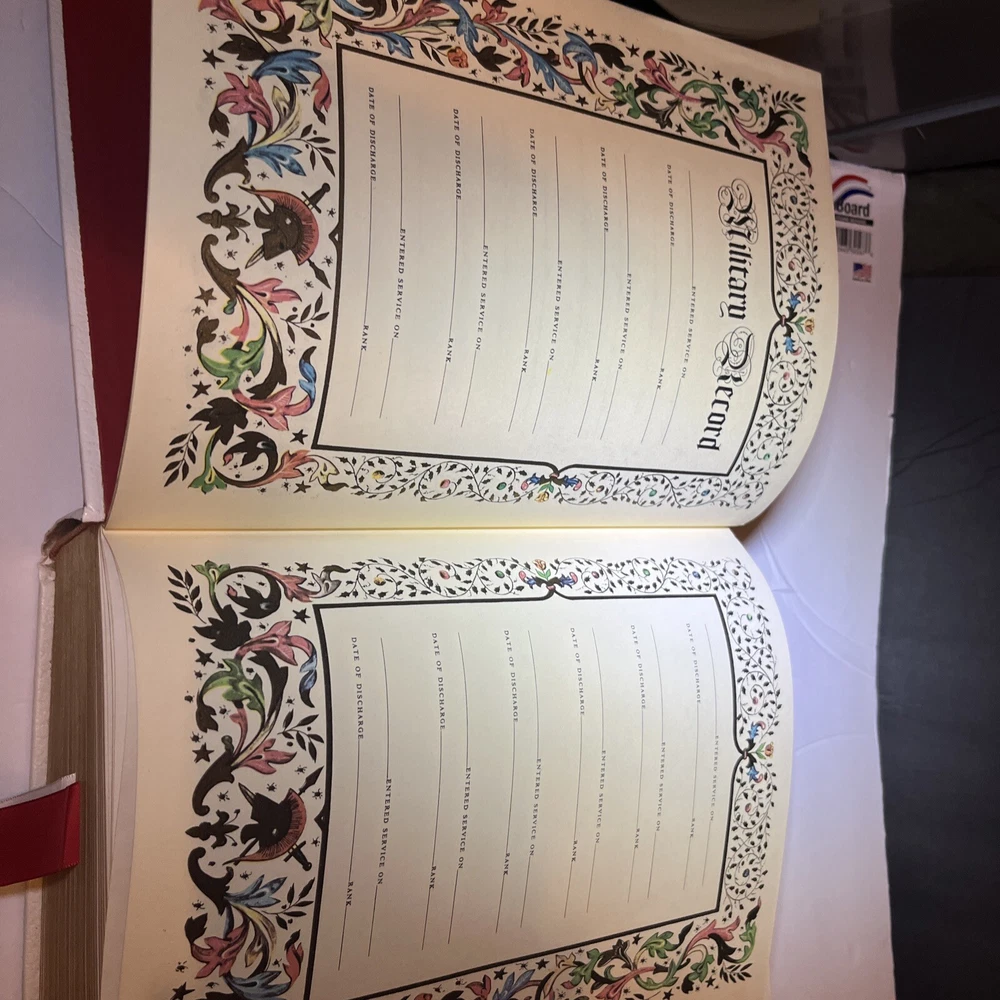 Military Record
ENTERED SERVICE ON
DATE OF DISCHARGE RANK
ENTERED SERVICE ON
DATE OF DISCHARGE RANK
ENTERED SERVICE ON
DATE OF DISCHARGE RANK
ENTERED SERVICE ON
DATE OF DISCHARGE RANK
ENTERED SERVICE ON
DATE OF DISCHARGE RANK
ENTERED SERVICE ON
DATE OF DISCHARGE RANK
ENTERED SERVICE ON
DATE OF DISCHARGE RANK
ENTERED SERVICE ON
DATE OF DISCHARGE RANK
ENTERED SERVICE ON
DATE OF DISCHARGE RANK
ENTERED SERVICE ON
DATE OF DISCHARGE RANK
ENTERED SERVICE ON
DATE OF DISCHARGE RANK
Board